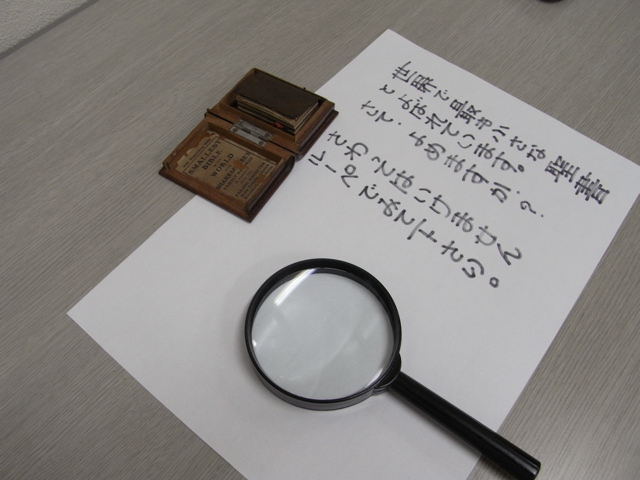 世界で最も小さな聖書
とよばれています。
さて、よめますか？
さわってはいけません
ルーペでみて下さい。
SMALLEST
BIBLE
IN THE
WORLD